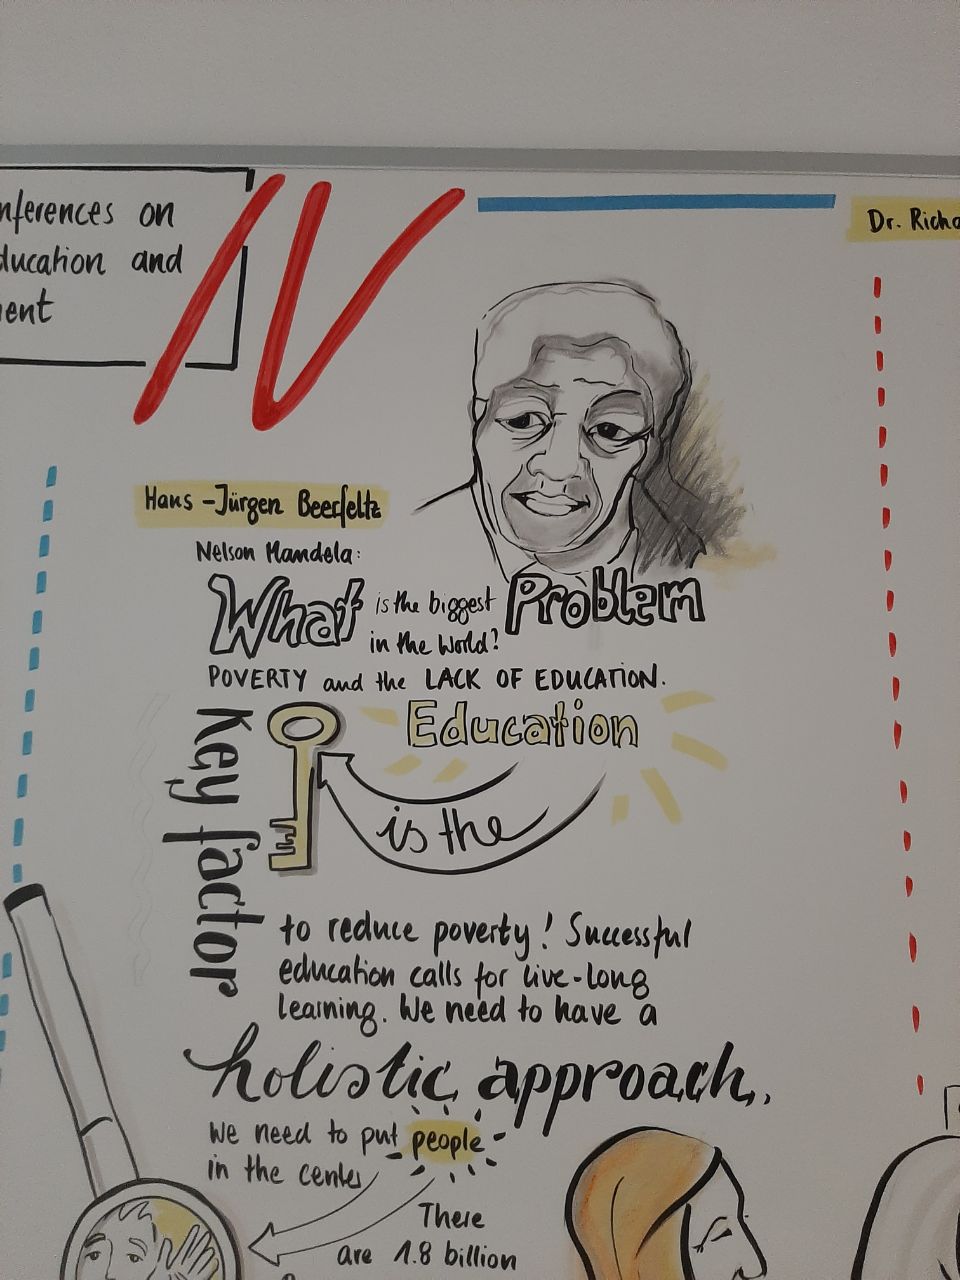 nferences on
ducation and
ent
N
Dr. Richa
Hans-Jürgen Beerfeltz
Nelson Mandela:
What is the biggest Problem
in the World?
POVERTY and the LACK OF EDUCATION.
Education
is the
Key factor
to reduce poverty! Successful
education calls for live-long
learning. We need to have a
holistic approach.
We need to put people
in the center
There
are 1.8 billion